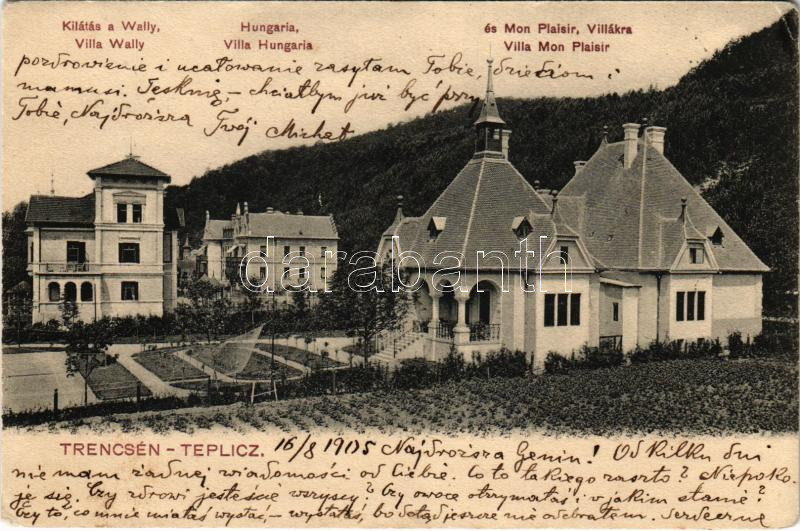 Kilátás a Wally,
Villa Wally
Hungaria,
Villa Hungaria
és Mon Plaisir, Villákra
Villa Mon Plaisir
pozdrowienie i ucałowanie zasyłam Tobie, dzieciom i
mamusi. Tesknię – chciałbym już być przy
Tobie, Najdroższa Twój Michał
darabanth.com
TRENCSÉN - TEPLICZ. 16/8 1905 Najdroższa Geniu! Od kilku dni
nie mam żadnej wiadomości od Ciebie. Co to takiego zaszło? Niepoko-
ję się. Czy zdrowi jesteście wszyscy? Czy owoce otrzymałaś i w jakim stanie?
Czy to, co mnie miałaś wysłać – wysłałaś, bo dotąd jeszcze nie odebrałem. Serdeczne